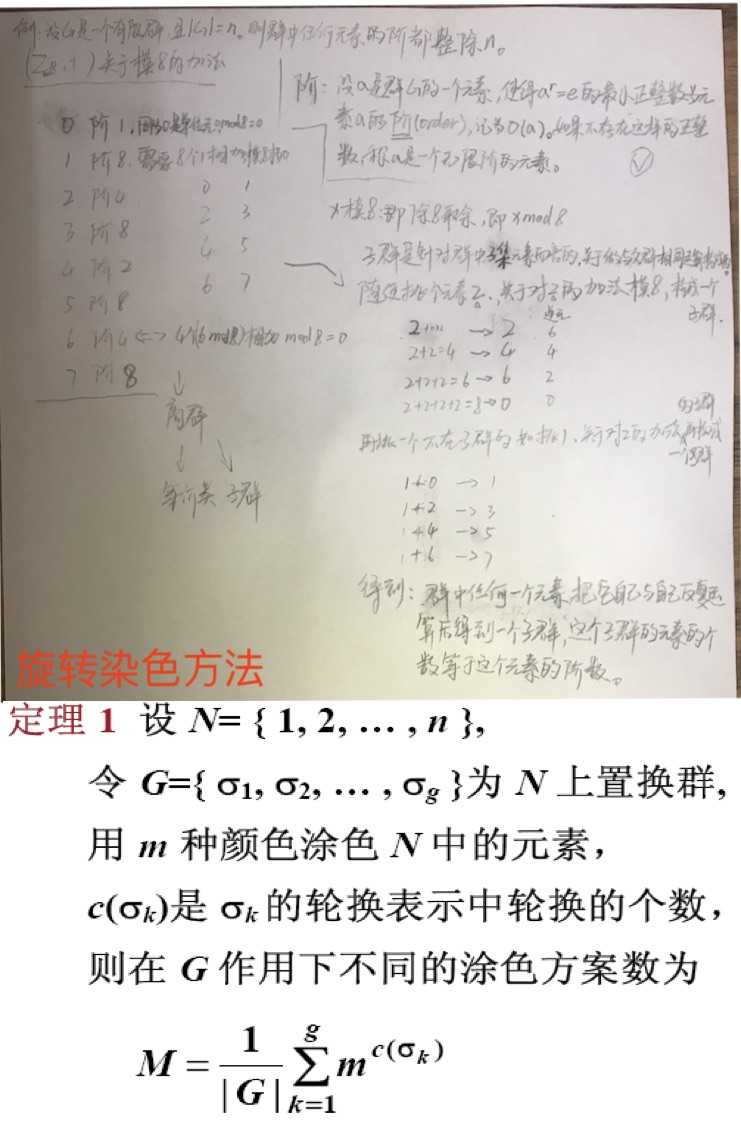 例:设G是一个有限群,且|G|=n。则群中任何元素的阶都整除n。
(Z8,+)关于模8的加法
0 阶1,因为0是单位元,0mod8=0
1 阶8.需要8个1相加模8为0
2 阶4
3 阶8
4 阶2
5 阶8
6 阶4 <-> 4个(6mod8)相加mod8=0
7 阶8
0 1
2 3
4 5
6 7
商群
等价类 子群
阶:设a是群G的一个元素,使得aʳ=e的最小正整数r为元
素a的阶(order),记为O(a)。如果不存在这样的正整
数,称a是一个无限阶的元素。
x模8:即除8取余,即xmod8
子群是针对群中子集元素而言的,关于
随便挑个元素2.,关于对2的加法模8,构成一个
子群.
逆元
2 -> 2 6
2+2=4 -> 4 4
2+2+2=6 -> 6 2
2+2+2+2=8 -> 0 0
再挑一个不在子群的 如挑1,关于对2的加法
1+0 -> 1
1+2 -> 3
1+4 -> 5
1+6 -> 7
得到:群中任何一个元素,把它自己与自己反复运
算后得到一个子群,这个子群的元素的个
数等于这个元素的阶数。
旋转染色方法
定理 1 设 N= { 1, 2, … , n },
令 G={ σ1, σ2, … , σg }为 N 上置换群,
用 m 种颜色涂色 N 中的元素,
c(σk)是 σk 的轮换表示中轮换的个数,
则在 G 作用下不同的涂色方案数为
M = 1/|G| ∑_{k=1}^{g} m^{c(σk)}